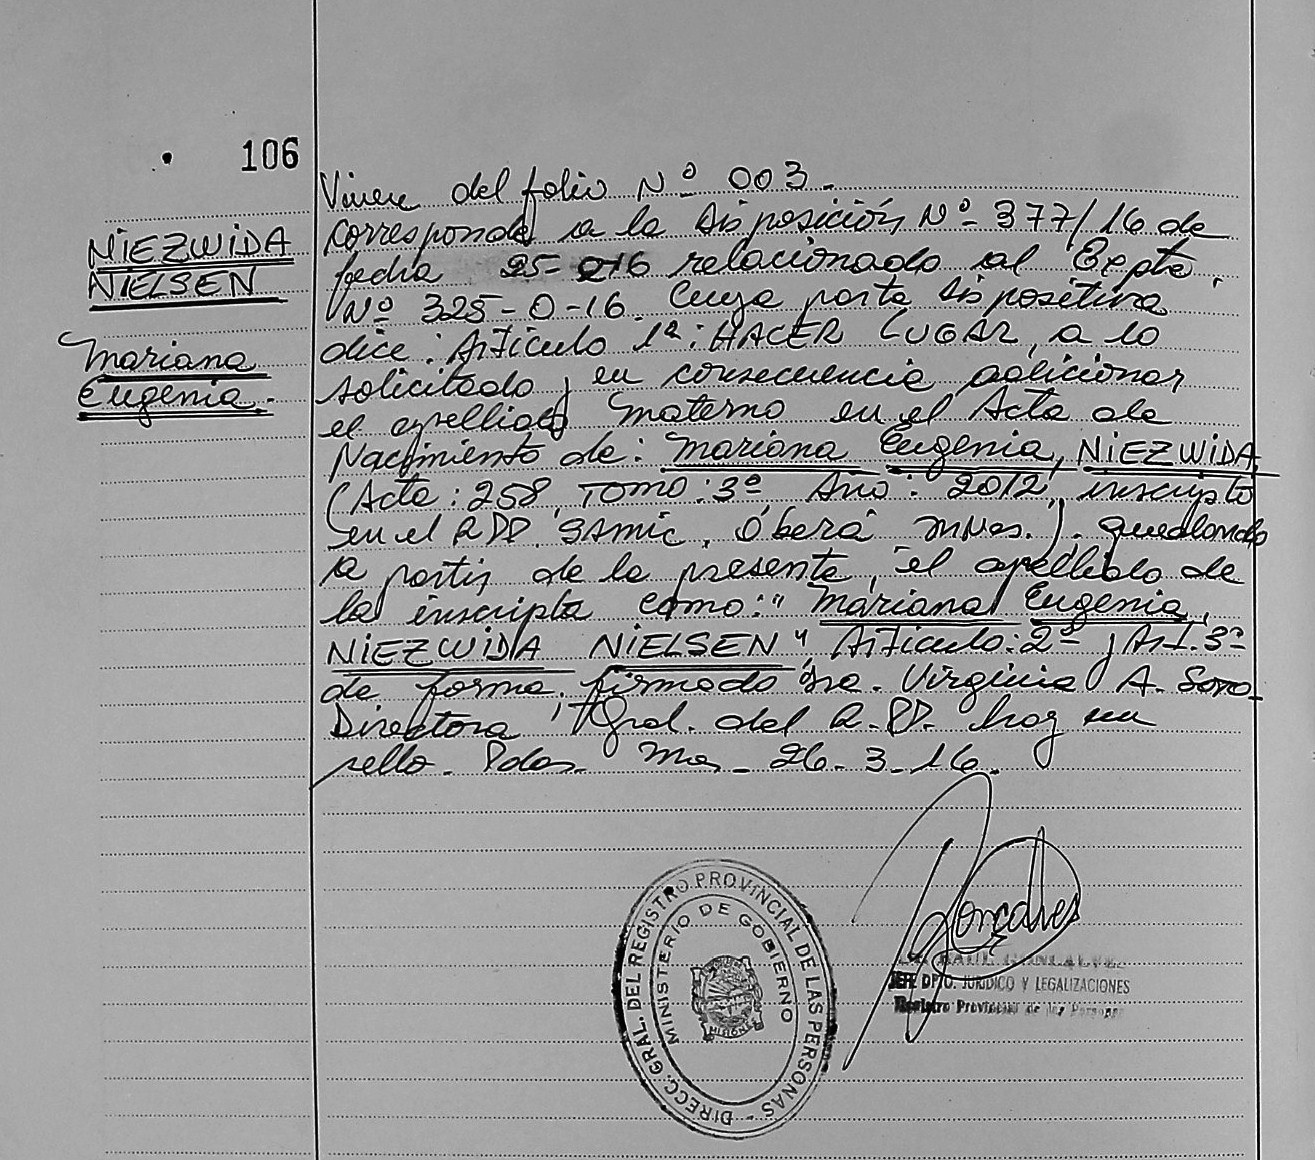 106
NIEZWIDA
NIELSEN
Mariana
Eugenia.
Viene del folio Nº 003.
Corresponde a la Disposición Nº 377/16 de
fecha 25- 16 relacionado al Expte.
Nº 325-0-16. Cuya parte dispositiva
dice: Artículo 1º: HACER LUGAR, a lo
solicitado y en consecuencia adicionar
el apellido materno en el Acta de
Nacimiento de: Mariana Eugenia, NIEZWIDA
(Acta: 258, TOMO: 3º Año: 2012, inscripta
en el R.P.P. SAMIC, Oberá Mnes.). quedando
a partir de la presente, el apellido de
la inscripta como: "Mariana Eugenia,
NIEZWIDA NIELSEN", Artículo: 2º y Art. 3º
de forma. firmado Dra. Virginia A.
Directora Gral. del R.P.P. hay un
sello. Pdas. Mnes. 26-3-16.
Goncalves
DIRECC. GRAL. DEL REGISTRO PROVINCIAL DE LAS PERSONAS -
MINISTERIO DE GOBIERNO
MISIONES
RAUL GONCALVEZ
JEFE DPTO. JURIDICO Y LEGALIZACIONES
Registro Provincial de las Personas